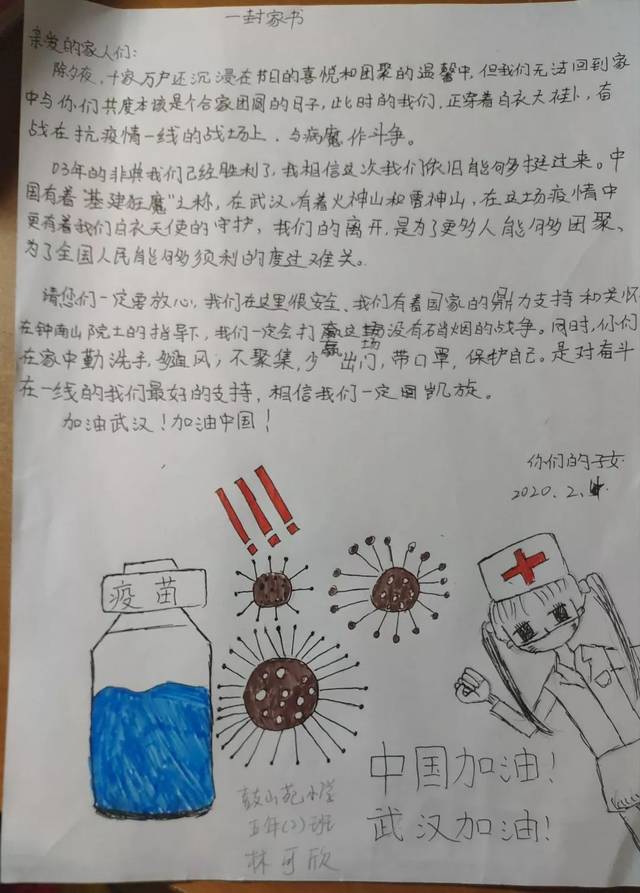 一封家书
亲爱的家人们:
除夕夜,千家万户还沉浸在节目的喜悦和团聚的温馨中,但我们无法回到家
中与你们共度本该是个合家团圆的日子,此时的我们,正穿着白衣大褂,奋
战在抗疫情一线的战场上,与病魔作斗争。
03年的非典我们已经胜利了,我相信这次我们依旧能够挺过来。中
国有着“基建狂魔”之称,在武汉,有着火神山和雷神山,在这场疫情中
更有着我们白衣天使的守护,我们的离开,是为了更多人能够团聚、
为了全国人民能够须利的度过难关。
请您们一定要放心,我们在这里很安全、我们有着国家的鼎力支持和关怀
在钟南山院士的指导下,我们一定会打赢这场没有硝烟的战争。同时,你们
在家中勤洗手,多通风,不聚集,少出门,带口罩,保护自己。是对奋斗
在一线的我们最好的支持,相信我们一定回凯旋。
加油武汉!加油中国!
你们的子女
2020.2.
!!!
疫苗
中国加油!
武汉加油!
鼓山苑小学
五年(2)班
林可欣